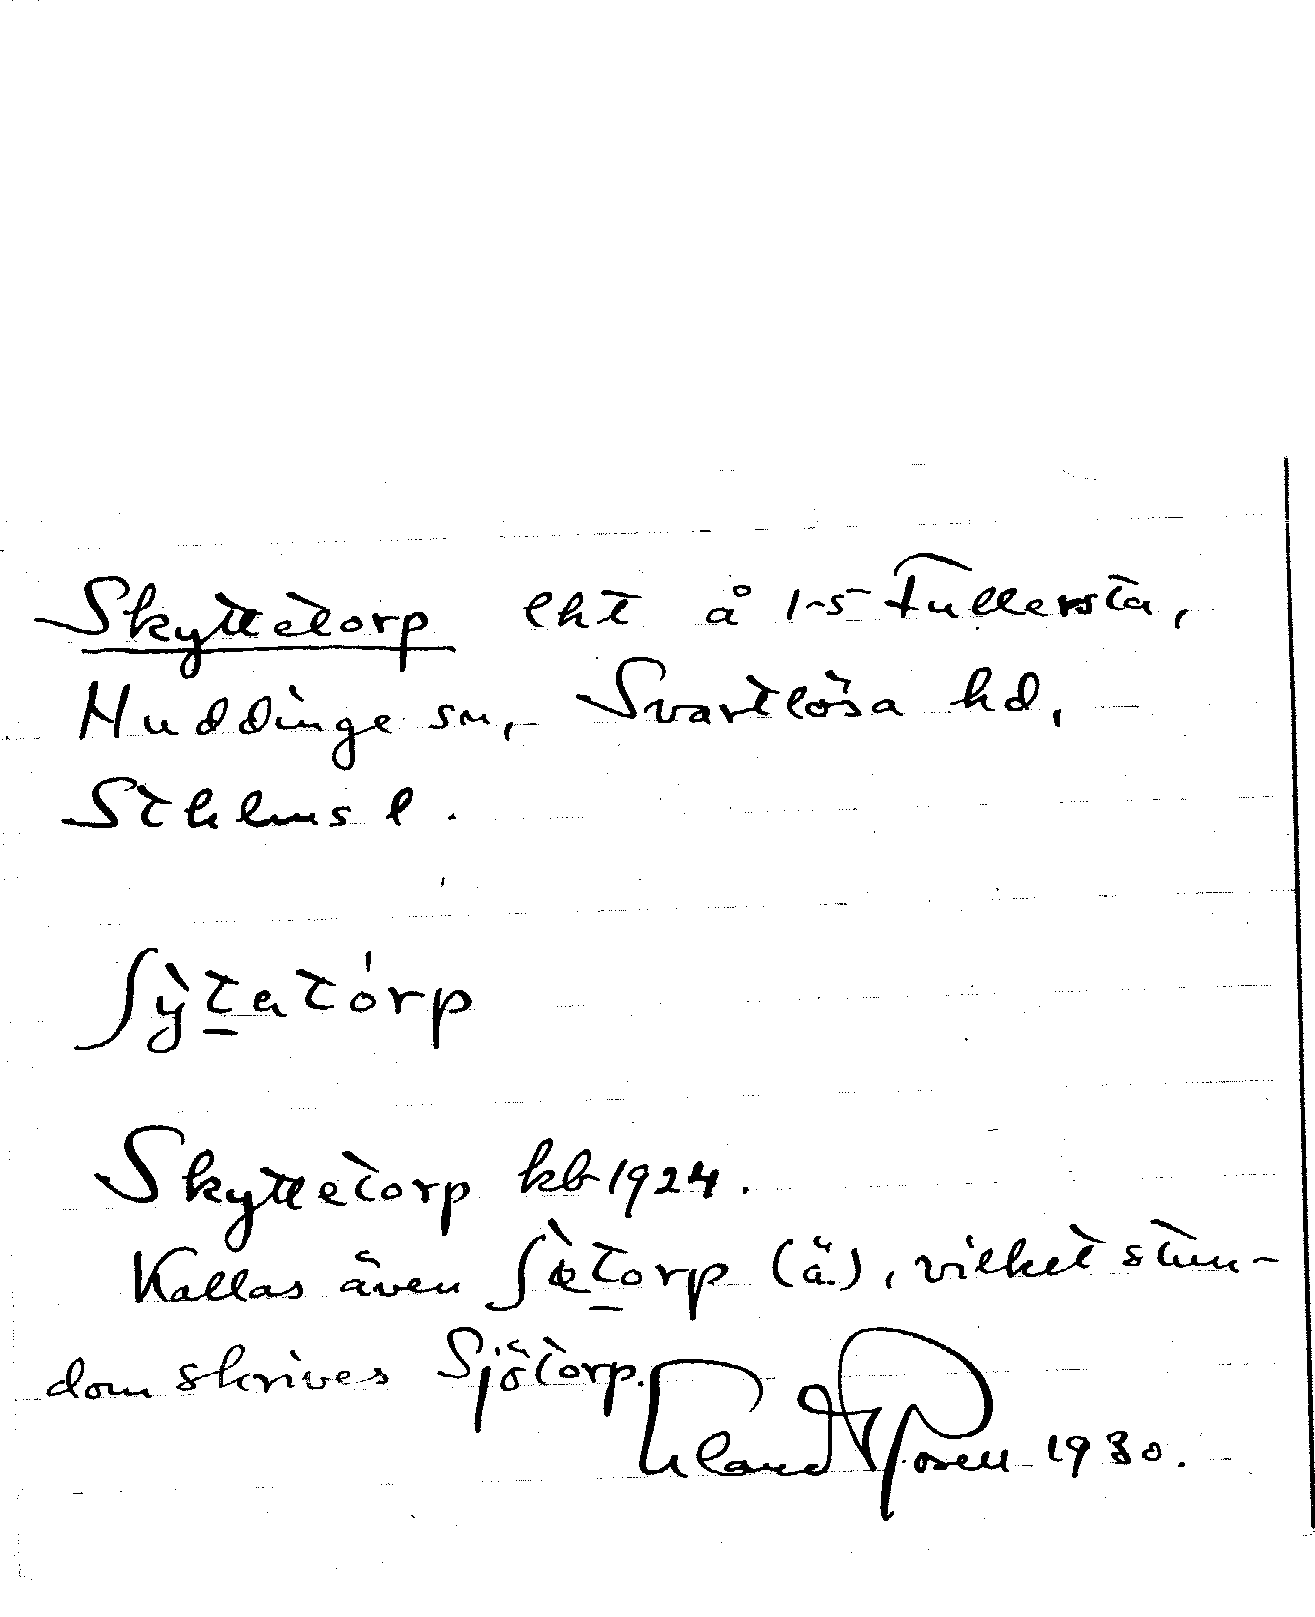 Skyttetorp lht å 1-5 Fullersta,
Huddinge sn, Svartlösa hd,
Sthlms l.
ʃỳt̲atórp
Skyttetorp kb 1924.
Kallas även ʃæ̀t̲orp (ä), vilket stun-
dom skrives Sjötorp.
Roland Rosell 1930.